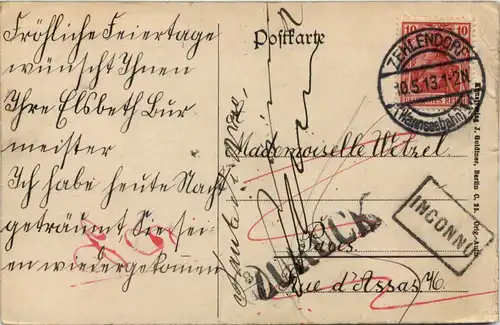 Fröhliche Feiertage
wünscht Ihnen
Ihre Elsbeth Bur
meister
Ich habe heute Nacht
geträumt Sie sei-
en wiedergekommen
Postkarte
10 10
ZEHLENDORF
10.5.13.1-2N
(Wannseebahn)
Mademoiselle Wetzel
Paris
Rue d'Assas
ZURÜCK
INCONNU
J. Goldiner, Berlin C. 25.